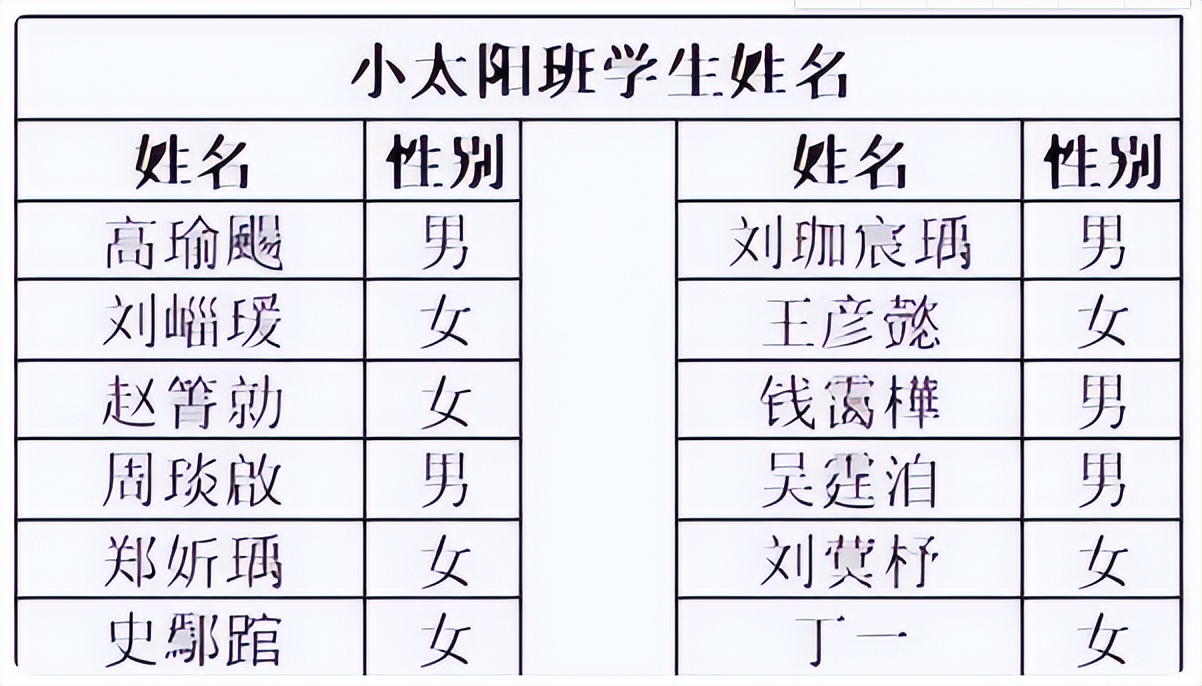 小太阳班学生姓名
姓名 性别 姓名 性别
高瑜飏 男 刘珈宸瑀 男
刘崰瑷 女 王彦懿 女
赵箐勍 女 钱霭樺 男
周琰啟 男 吴霆洎 男
郑妡瑀 女 刘蓂杼 女
史鄢踣 女 丁一
女